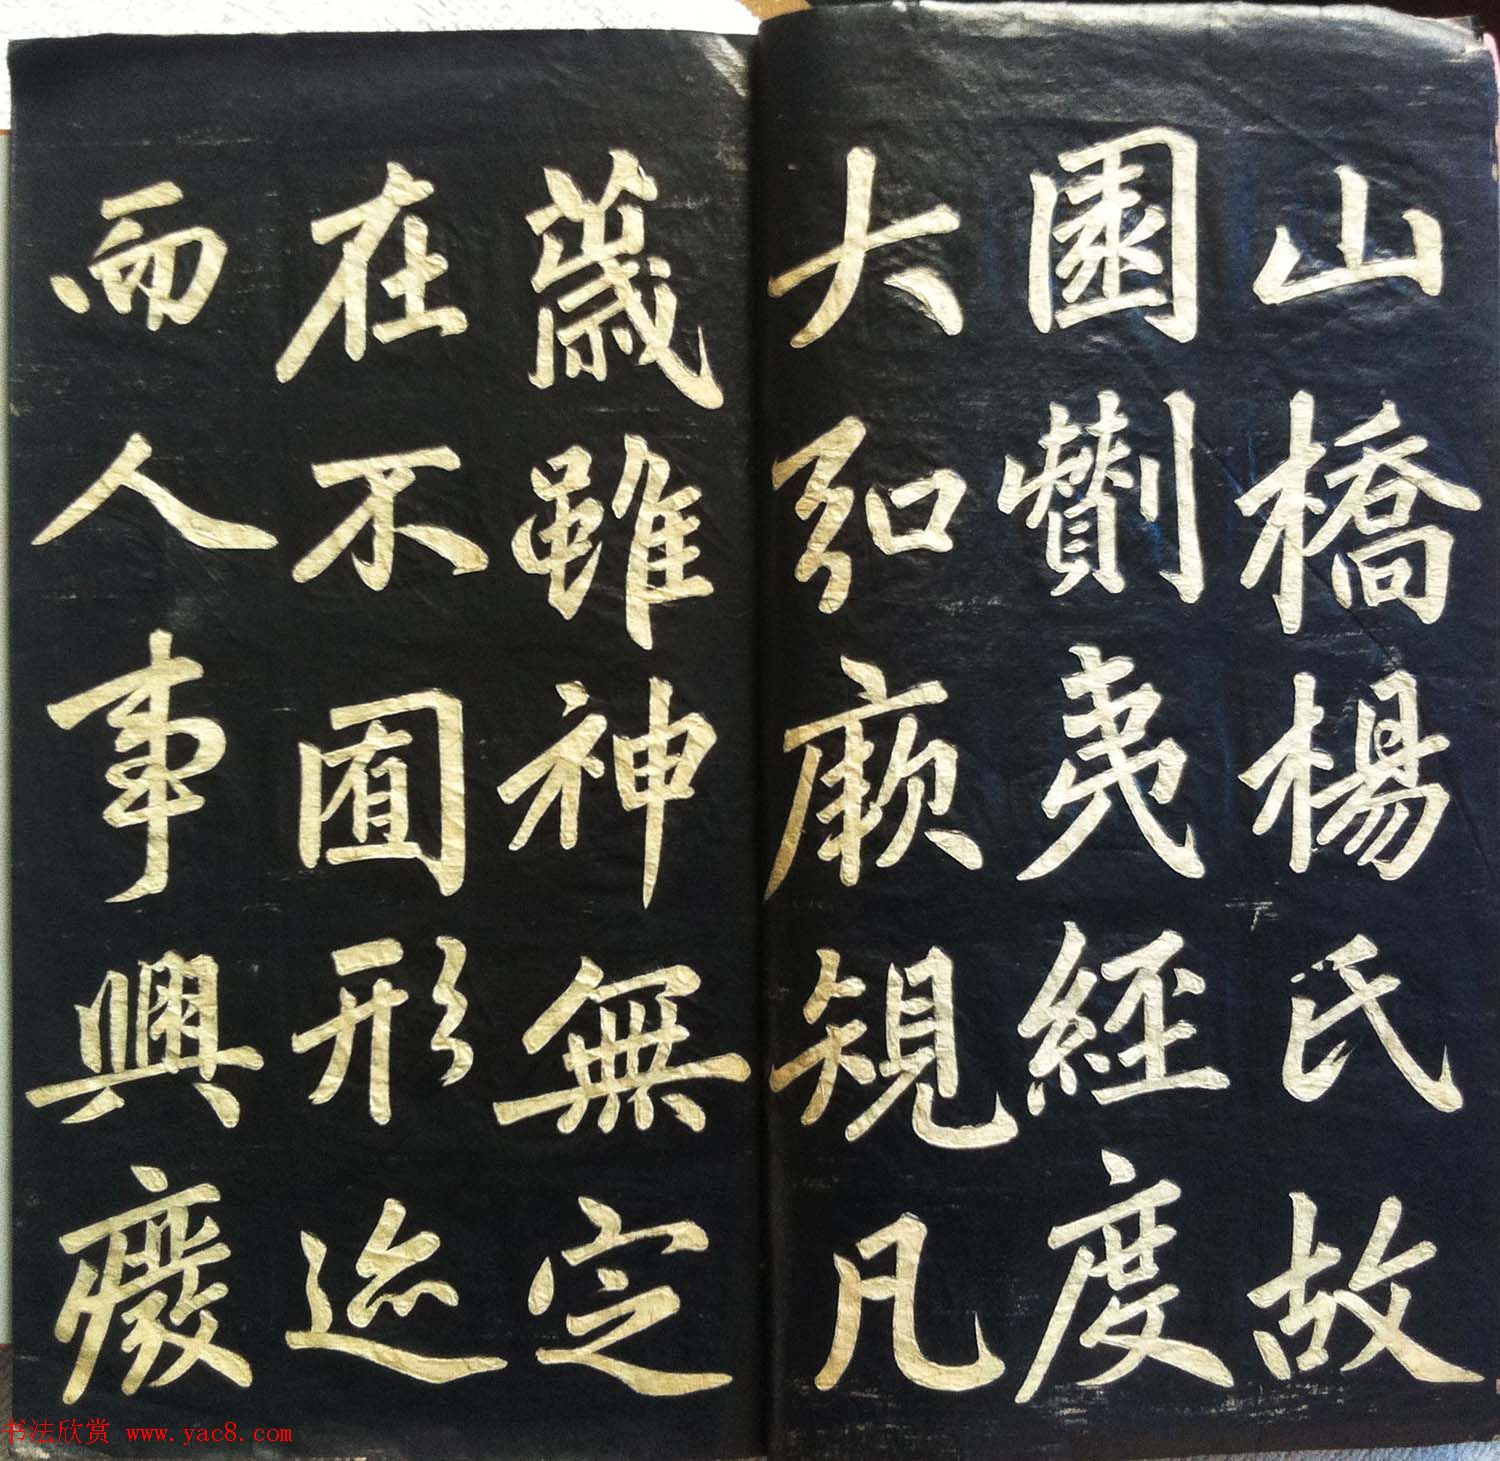 山橋楊氏故
園劗夷經度
大弘厥規凡
葳雖神無定
在不囿形迹
而人事興廢
书法欣赏 www.yac8.com